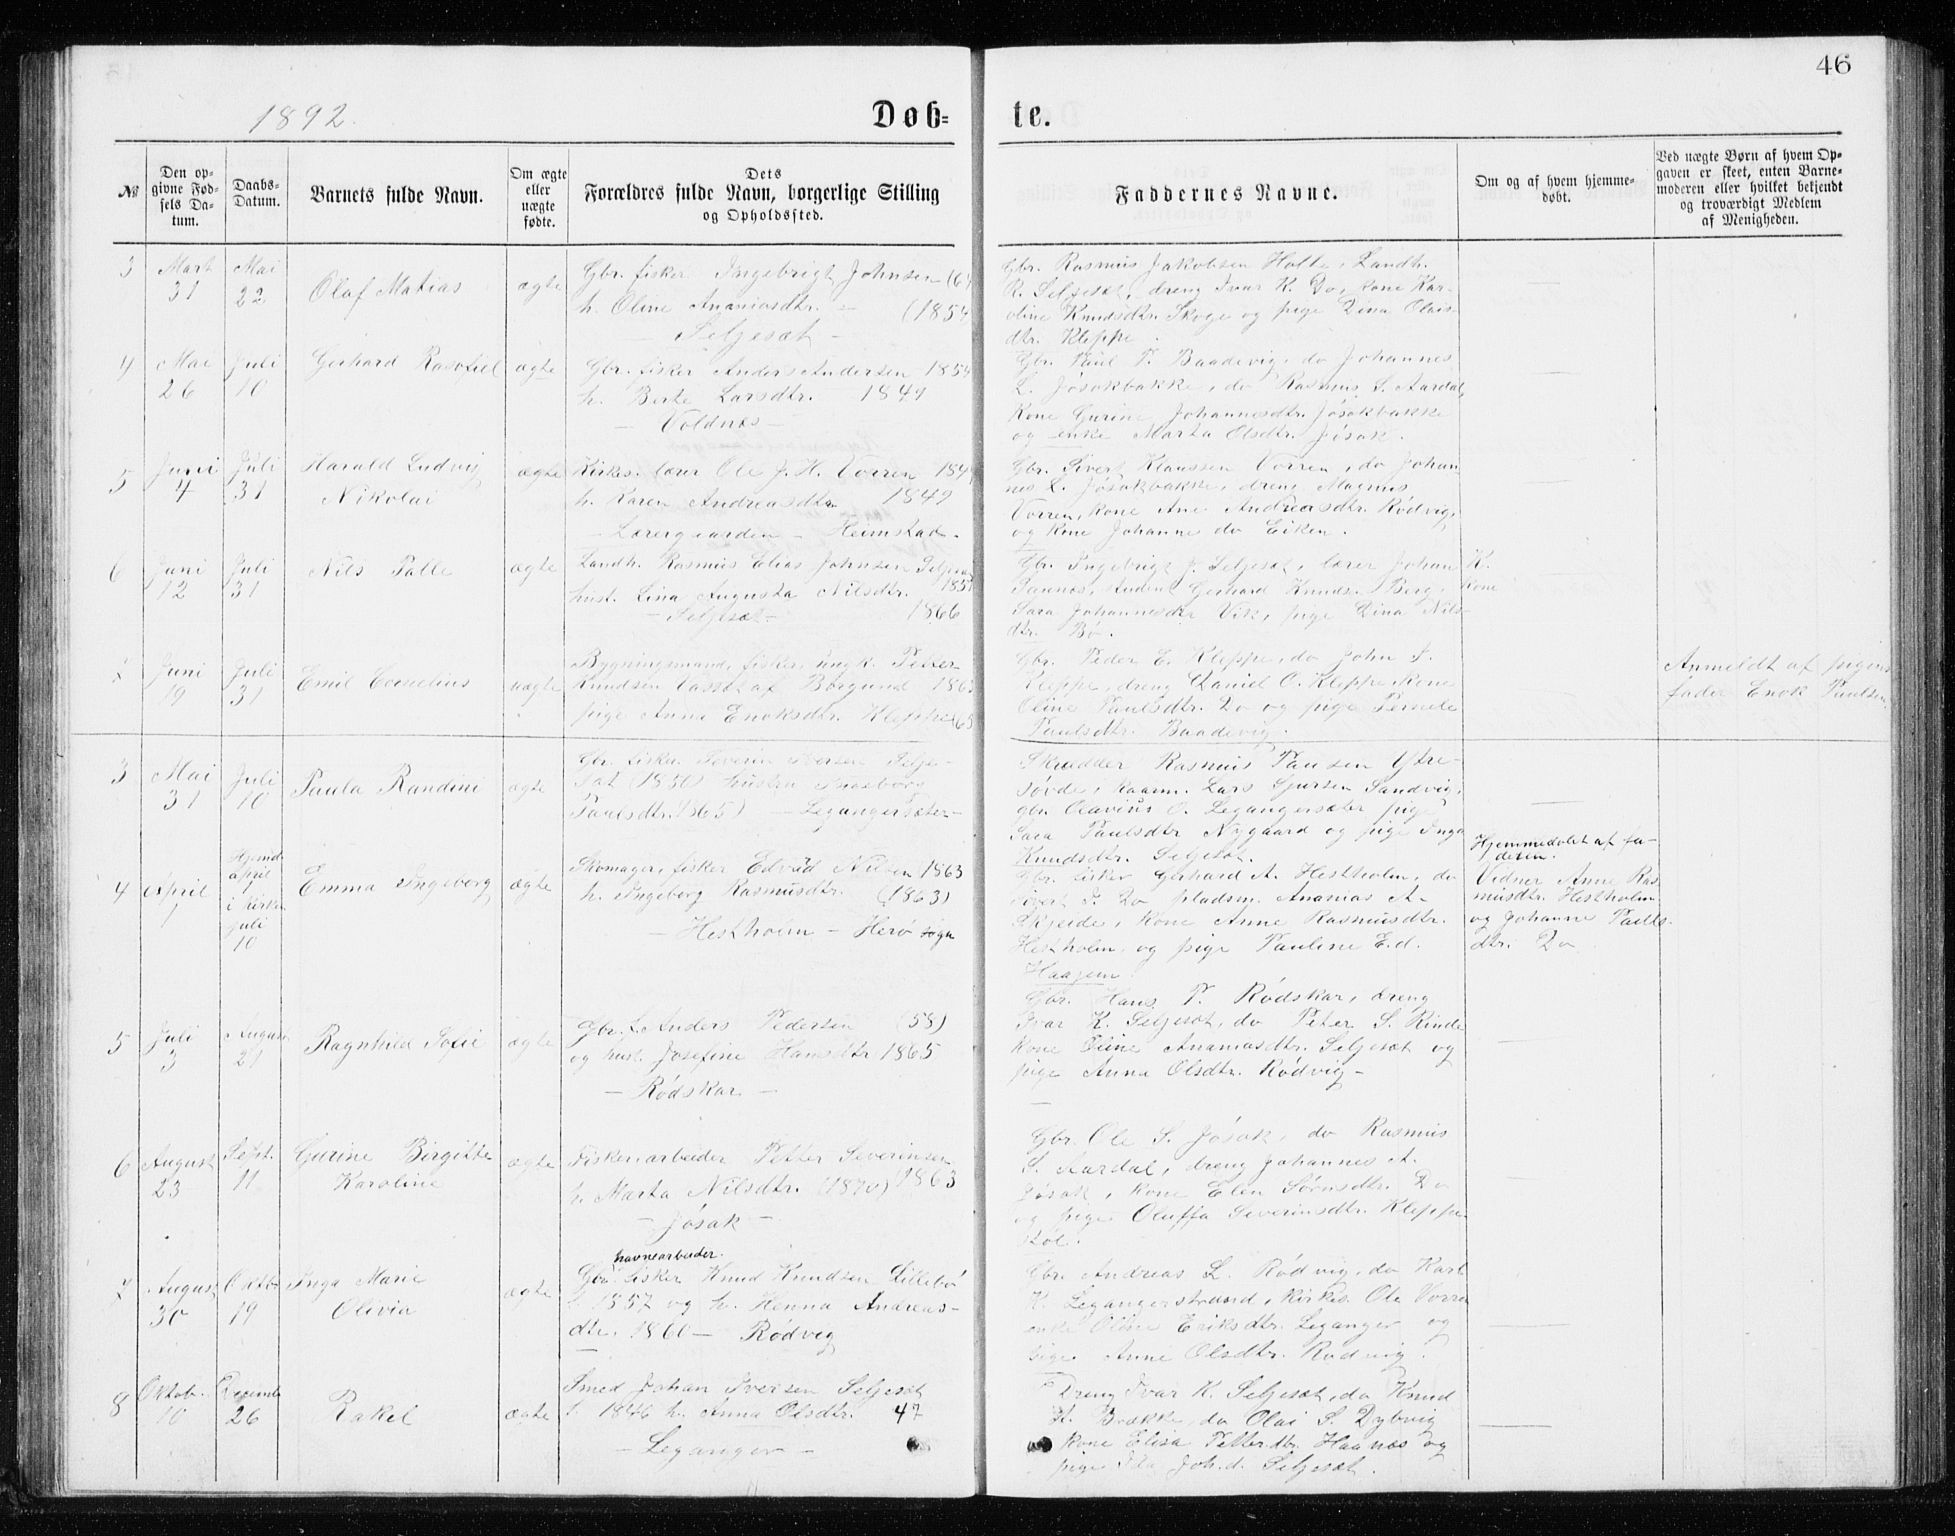 46
1892.
Døb=
te.
No
Den op-
givne Fød-
sels Da-
tum.
Daabs-
Datum.
Barnets fulde Navn.
Om ægte
eller
uægte
fødte.
Dets
Forældres fulde Navn, borgerlige Stilling
og Opholdssted.
Faddernes Navne.
Om og af hvem hjemme-
døbt.
Ved uægte Børn af hvem Op-
gaven er skeet, enten Barne-
moderen eller hvilket bekjendt
og troværdigt Medlem
af Menigheden.
3
Mart
31
Mai
22
Olaf Matias
ægte
Gbr. fisker Ingebrigt Johnsen (64
h. Oline Ananiasdtr. - (1854
- Seljesæt -
Gbr. Rasmus Jakobsen Holte, Landh.
R. Seljesæt, dreng Ivar K. Do, kone Kar-
oline Knudsdtr. Skoge og pige Dina Olais-
dtr. Kleppe.
4
Mai
26
Juli
10
Gerhard Rasofiel
ægte
Gbr. fisker Anders Andersen 1854
h. Berte Larsdtr. 1849
- Voldnæs -
Gbr. Paul P. Baadevig, do Johannes
L. Jøsokbakke, do Rasmus S. Aardal,
Kone Gurine Johannesdtr. Jøsokbakke
og enke Marta Olsdtr. Jøsok.
5
Juni
4
Juli
31
Harald Ludvig
Nikolai
ægte
Kirkes. lærer Ole J. H. Vorren 184
h. Karen Andreasdtr. 1849
- Lærergaarden - Heimstad -
Gbr. Sivert Klaussen Vorren, do Johan
nes L. Jøsokbakke, dreng Magnus
Vorren, kone Ane Andreasdtr. Rødvig,
og kone Johanne do Eiken.
6
Juni
12
Juli
31
Nils Palle
ægte
Landh. Rasmus Elias Johnsen Seljesæt
1851
hust. Lina Augusta Nilsdtr.
- Seljesæt - 1866
Gbr. Ingebrigt J. Seljesæt, lærer Johan K.
Gerhard Knuds. Berg, Kone
Sara Johannesdtr Vik, pige Dina Nils-
dtr. Bø.
7
Juni
19
Juli
31
Emil Cornelius
uægte
Bygningsmand, fisker, ungk. Petter
Knudsen Vassæt af Borgund 186
pige Anna Enoksdtr. Kleppe (65
Gbr. Peder E. Kleppe, do John I.
Kleppe, dreng Daniel O. Kleppe, kone
Oline Paulsdtr. Do og pige Pernele
Paulsdtr. Baadevig.
Anmeldt af pigens
fader Enok Paulsen.
3
Mai
31
Juli
10
Paula Randini
ægte
Gbr. fisker Severin Iversen Selje-
sæt (1850) hustru Ingeborg
Paulsdtr. 1865) - Legangersæter -
Skrædder Rasmus Paulsen Ytre-
søvde, Lars Sjursen Sandvig,
gbr. Olavius O. Legangersæter, pige
Sara Paulsdtr Nygaard og pige Inga
Knudsdtr. Seljesæt.
4
April
1
Hjemd.
april
1
i kirke
juli
10
Emma Ingeborg
ægte
Skomager, fisker Edvard Nilsen 1863
h. Ingeborg Rasmusdtr. (1863)
- Hestholm - Herø sogn
Gbr. fisker Gerhard A. Hestholm, do
Sivert I. Do pladsm. Ananias A.
Skjeide, Kone Anne Rasmusdtr.
Hestholm, og pige Pauline E.d.
Haagen.
Hjemmedøbt af fa-
deren.
Vidner Anne Ras
musdtr. Hestholm
og Johanne Pauls-
dtr. Do
5
Juli
3
August
21
Ragnhild Sofie
ægte
Gbr. f. Anders Pedersen (58)
og hust. Josefine Hansdtr 1865
- Rødskar -
Gbr. Hans P. Rødskar, dreng
Ivar K. Seljesæt, do Peter S. Rinde
Kone Oline Ananiasdtr. Seljesæt og
pige Anna Olsdtr. Rødvig -
6
August
23
Sept.
11
Gurine Birgitte
Karoline
ægte
Fisker, arbeider Petter Severinsen
1863
h. Marta Nilsdtr. (1870)
- Jøsok -
Gbr. Ole S. Jøsok, do Rasmus
S. Aardal, dreng Johannes A.
Jøsok, kone Elen Sørensdtr. Do
og pige Oluffa Severinsdtr. Kleppe-
stol.
7
August
30
Oktob.
19
Inga Marie
Olivia
ægte
havnearbeider.
Gbr. fisker Knud Knudsen Lillebø
f. 1857 og h. Henna Andreas-
dtr. 1860 - Rødvig
Gbr. Andreas L. Rødvig, do Karl
K. Legangerstrand, kirkes. Ole Vorren
enke Oline Eriksdtr. Leganger og
pige Anne Olsdtr. Rødvig.
8
Oktob.
10
Decemb
26
Rakel
ægte
Smed Johan Iversen Seljesæt
f. 1846 h. Anna Olsdtr. 47
- Leganger -
Dreng Ivar K. Seljesæt, do Knud
H. Brække, do Olai S. Dybvig
kone Elisa Petterdtr. Haanæs og
pige Ida Joh.d. Seljesæt.